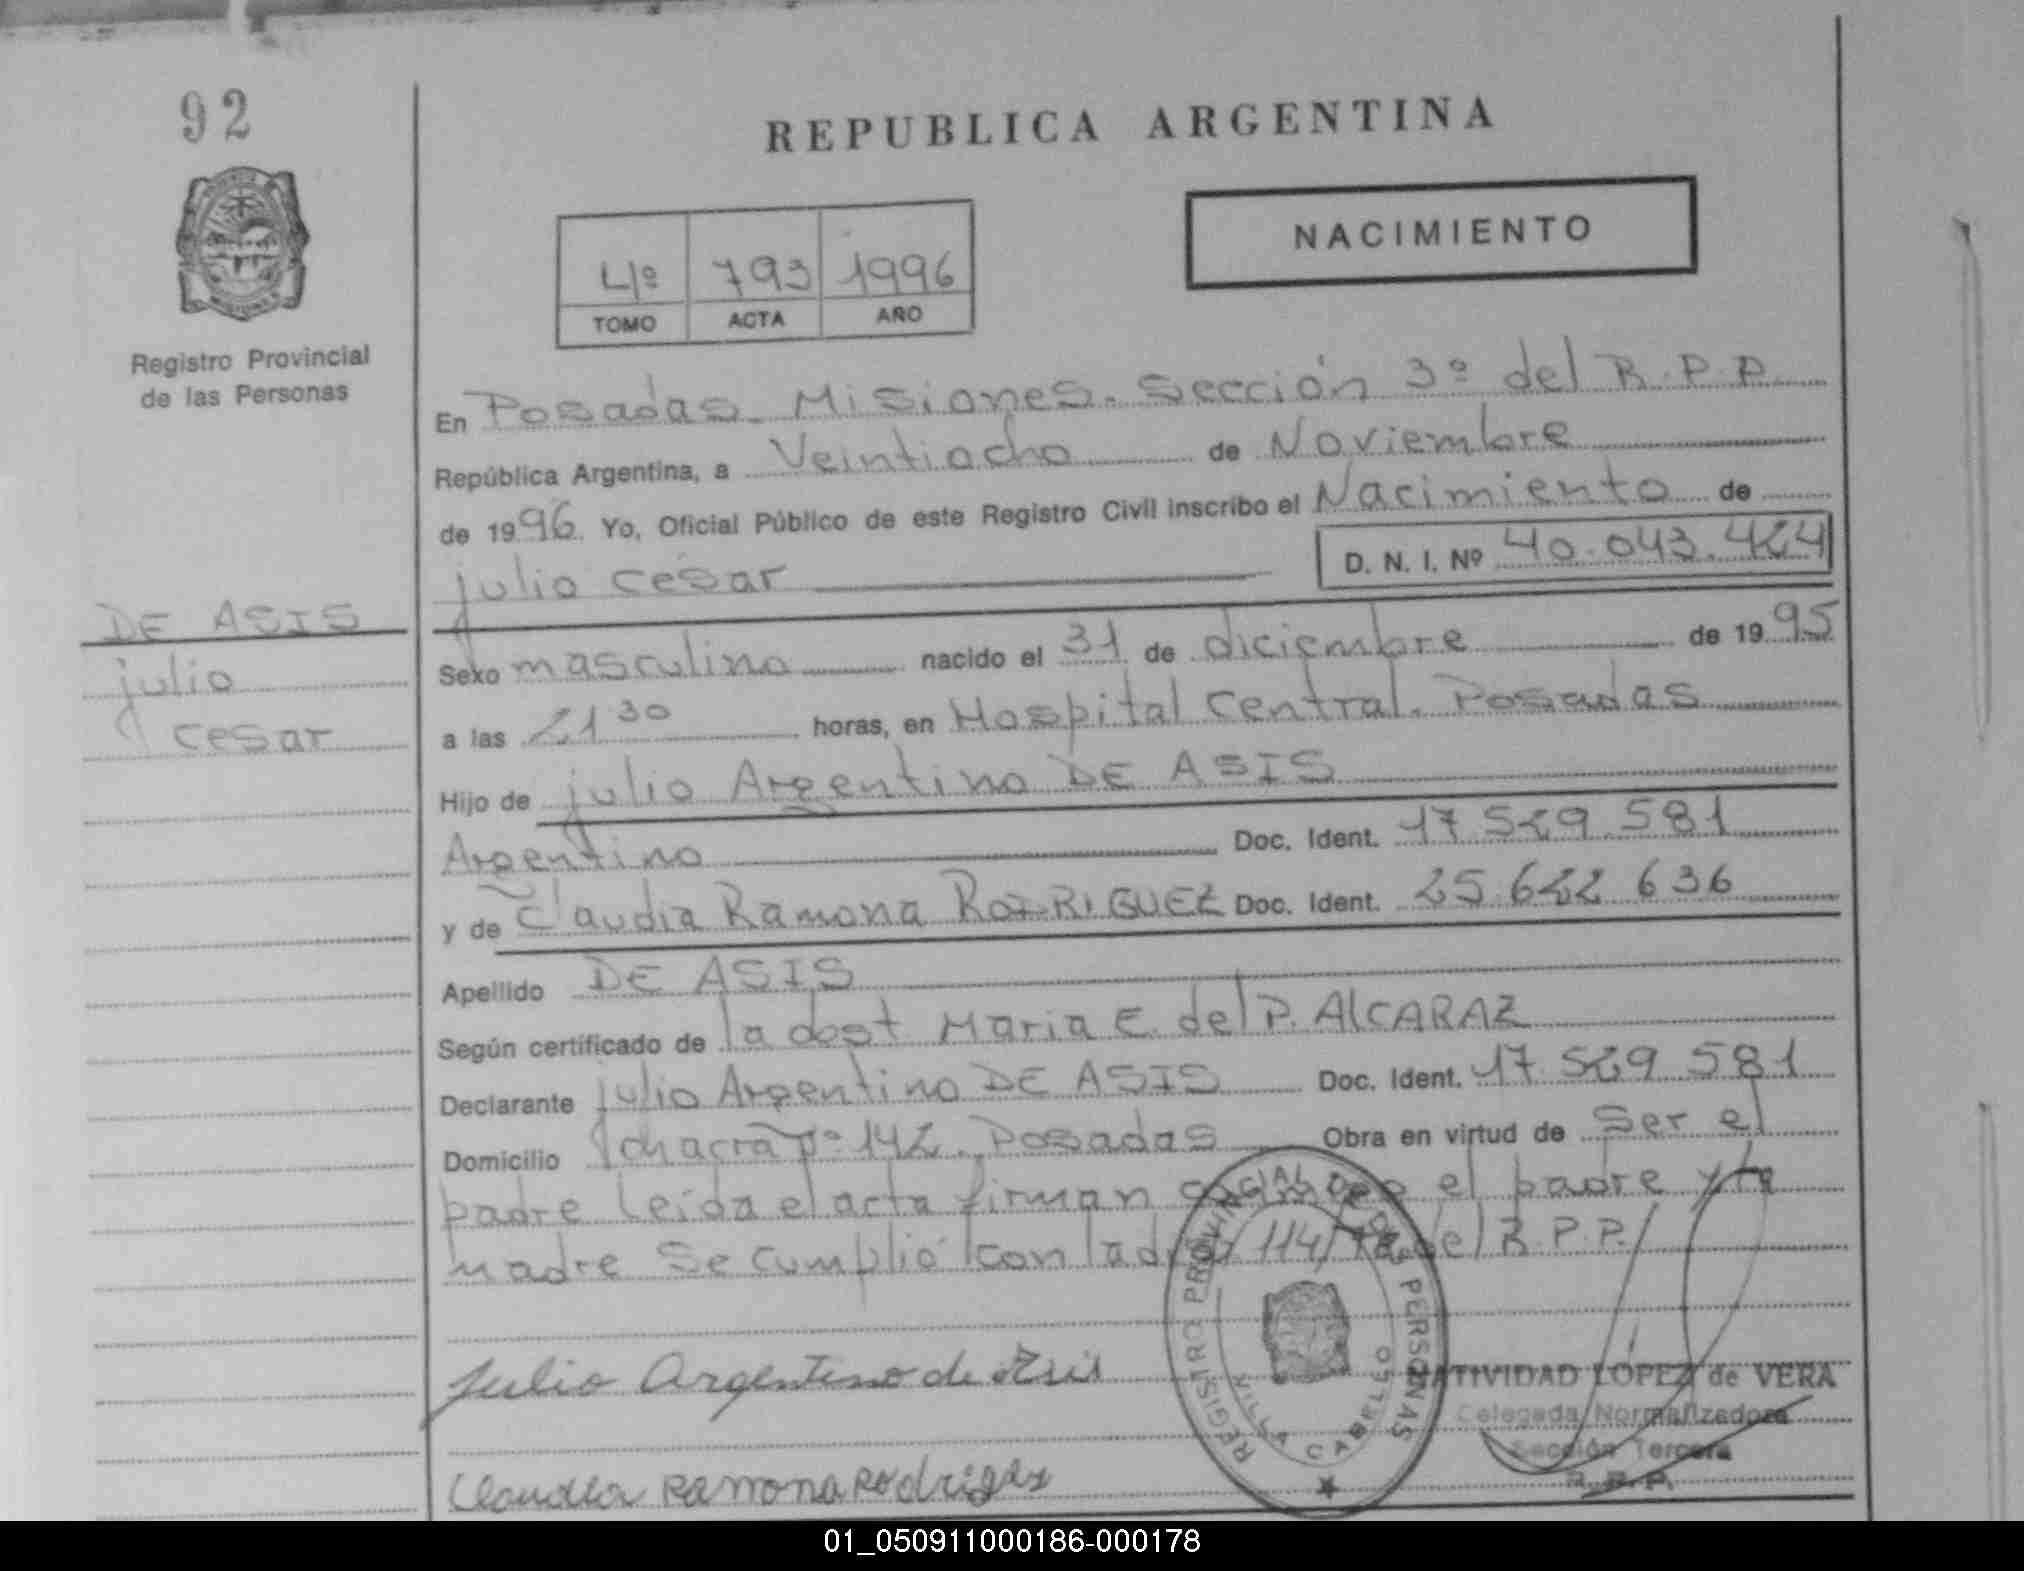 92
REPUBLICA ARGENTINA
NACIMIENTO
4º 793 1996
TOMO ACTA AÑO
Registro Provincial
de las Personas
En Posadas - Misiones - Sección 3º del R.P.P.
República Argentina, a Veintiocho de Noviembre
de 1996 Yo, Oficial Público de este Registro Civil inscribo el Nacimiento de
julio cesar D. N. I. Nº 40.043.424
DE ASIS
julio
cesar
Sexo masculino nacido el 31 de diciembre de 1995
a las 21 30 horas, en Hospital Central. Posadas
Hijo de julio Argentino DE ASIS
Argentino Doc. Ident. 17.529.581
y de Claudia Ramona RODRIGUEZ Doc. Ident. 25.622.636
Apellido DE ASIS
Según certificado de la obst Maria E. del P. AlCARAZ
Declarante julio Argentino DE ASIS Doc. Ident. 17.529.581
Domicilio chacra nº 142. Posadas Obra en virtud de Ser el
padre Leida el acta firman el padre y la
madre Se cumplió con la 114/ del R.P.P.
REGISTRO PROVINCIAL DE LAS PERSONAS
VILLA CABELLO
Julio Argentino de Asis
NATIVIDAD LÓPEZ de VERA
Delegada Normalizadora
Sección Tercera
R.P.P.
Claudia Ramona Rodriguez
01_050911000186-000178